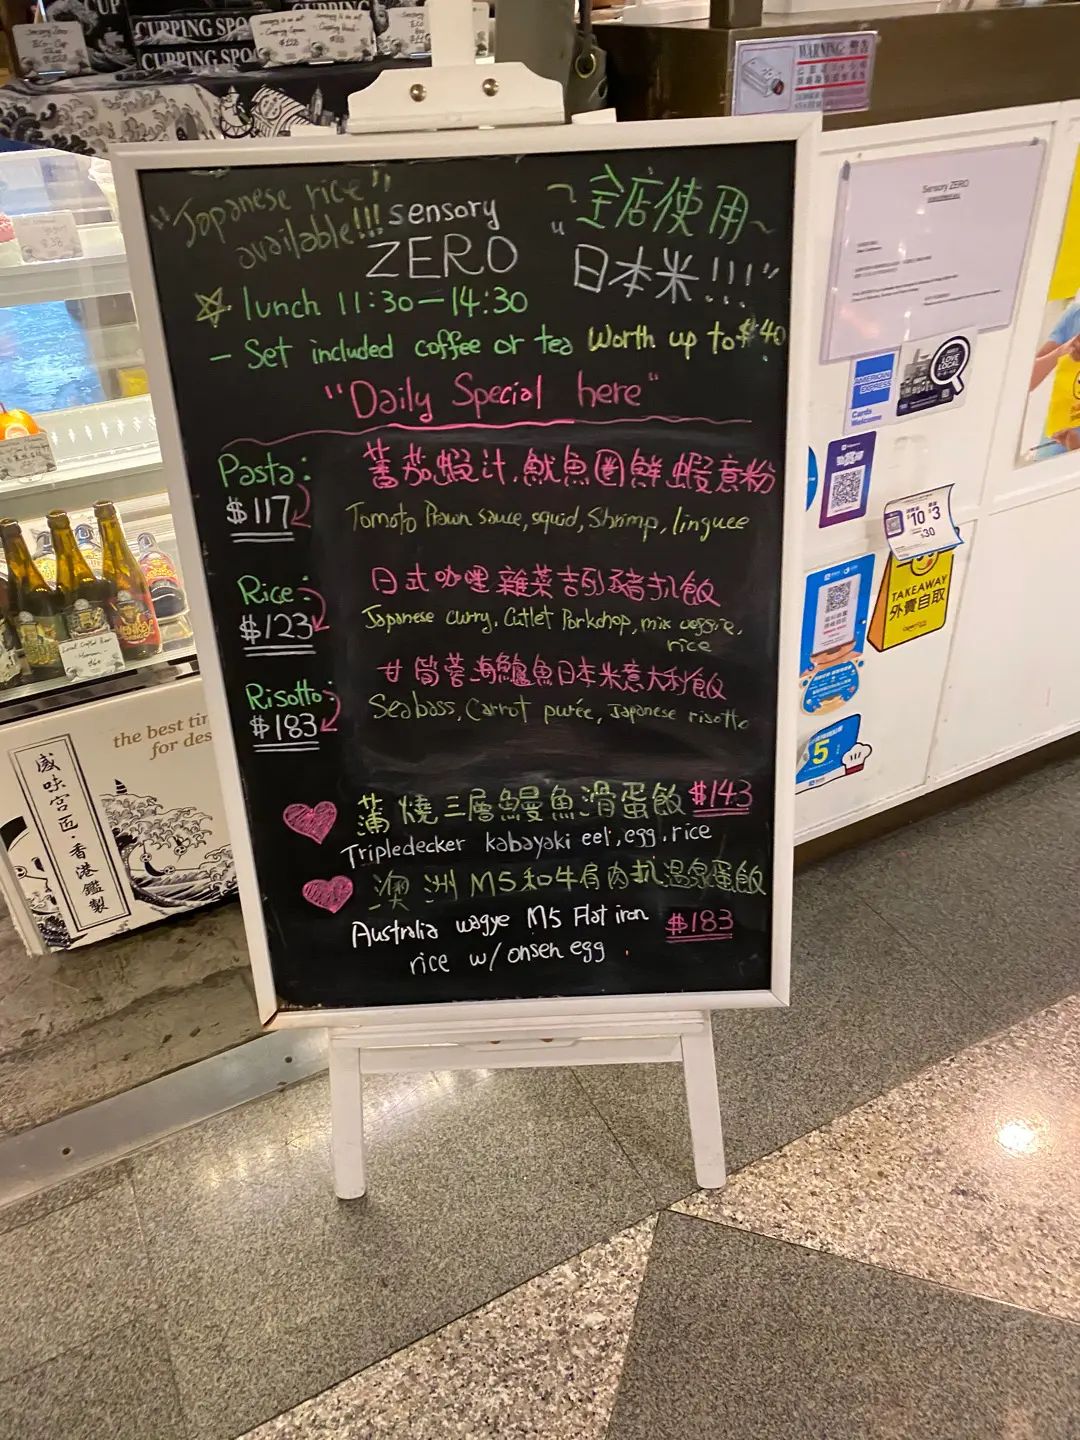 CUPPING SPOON
CUPPING SPO
WARNING: 警告
"Japanese rice"
available!!!
sensory
ZERO
~全店使用~
"日本米!!!"
☆ lunch 11:30—14:30
- Set included coffee or tea Worth up to $40
"Daily Special here"
Pasta:
$117
蕃茄蝦汁,魷魚圈鮮蝦意粉
Tomato Prawn sauce, squid, Shrimp, linguee
Rice:
$123
日式咖哩雜菜吉列豬扒飯
Japanese curry, Cutlet Porkchop, mix veggie,
rice
Risotto:
$183
甘筍蓉海鱸魚日本米意大利飯
Seabass, Carrot purée, Japanese risotto
蒲燒三層鰻魚滑蛋飯 $143
Tripledecker kabayaki eel, egg, rice
澳洲M5和牛肩肉扒溫泉蛋飯
Australia wagye M5 Flat iron $183
rice w/ onsen egg
Sensory ZERO
AMERICAN
EXPRESS
Cards
Welcome
LOVE
LOCAL
$10 $3
$30
TAKEAWAY
外賣自取
5
the best tim
for des
感味宮匠·香港鑑製